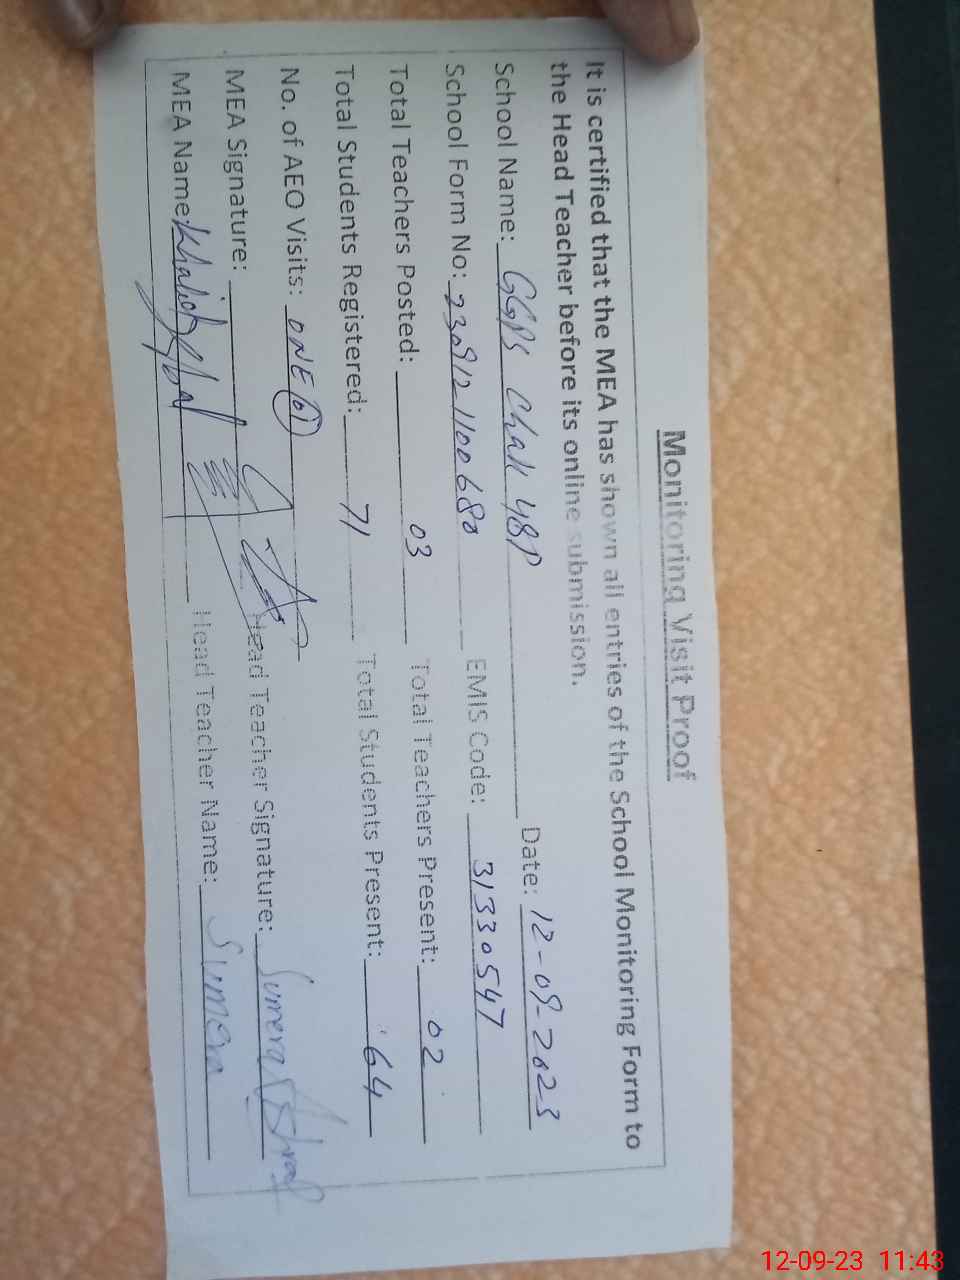 Monitoring Visit Proof
It is certified that the MEA has shown all entries of the School Monitoring Form to
the Head Teacher before its online submission.
School Name: GGPS Chak 48P Date: 12-09-2023
School Form No: 230912100680 EMIS Code: 31330547
Total Teachers Posted: 03 Total Teachers Present: 02
Total Students Registered: 71 Total Students Present: 64
No. of AEO Visits: ONE 01
MEA Signature: Head Teacher Signature: Sumera Ashraf
MEA Name: Khalid Iqbal Head Teacher Name: Sumera
12-09-23 11:43